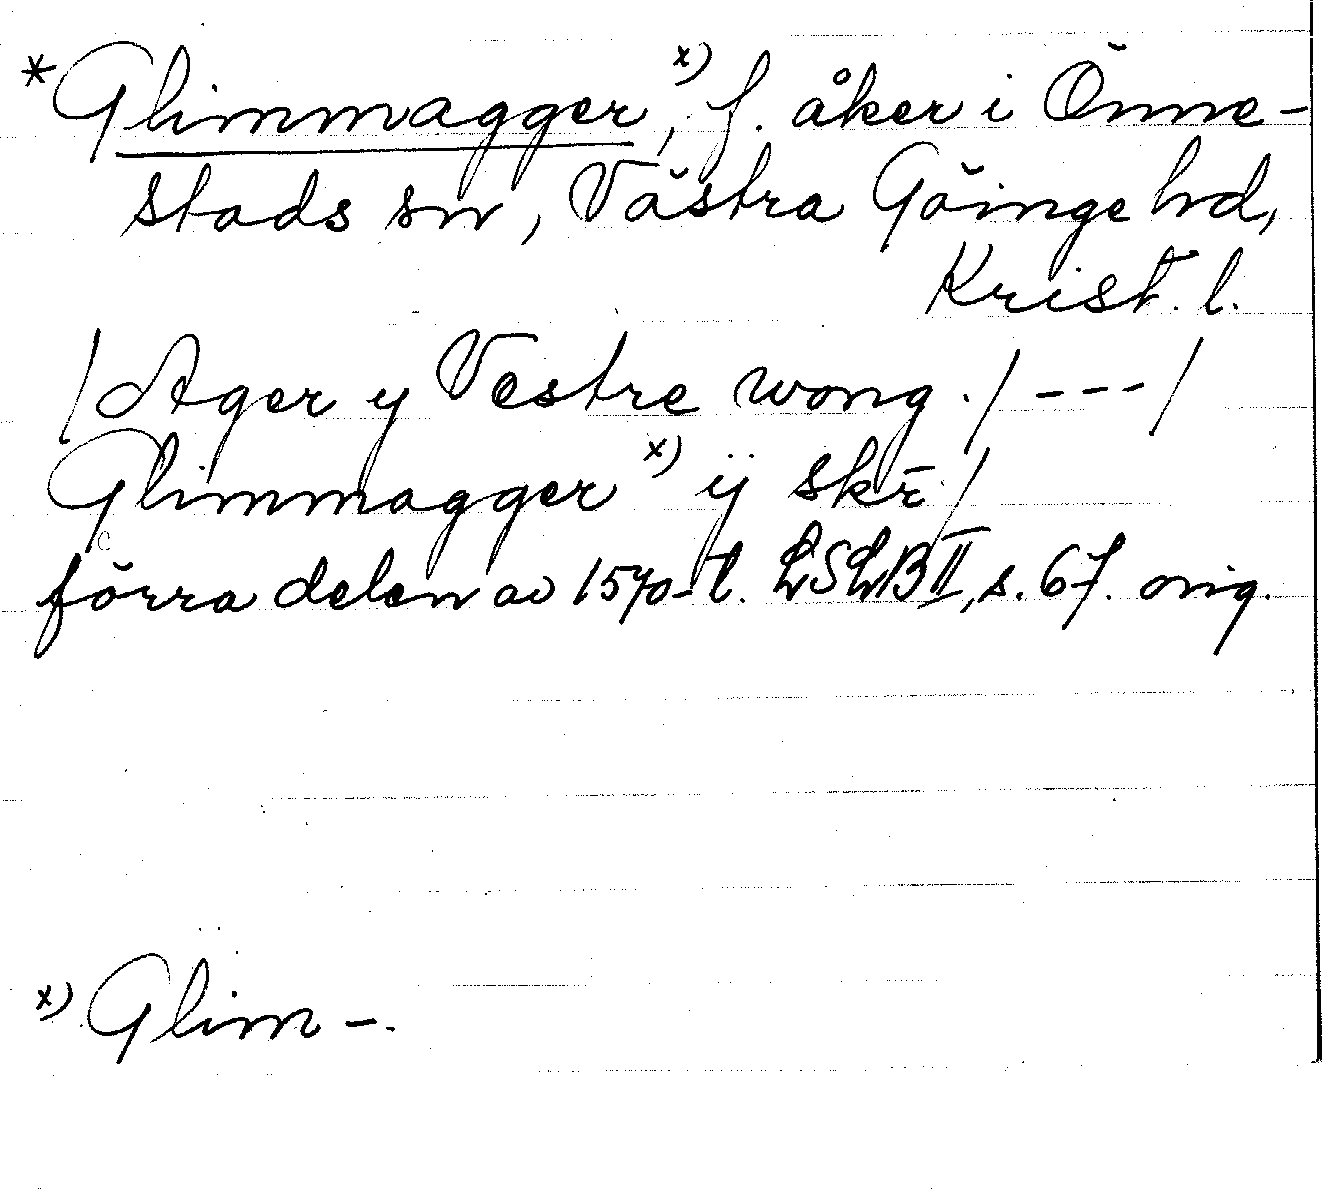 *Glimmagger x), f. åker i Önne-
stads sn, Västra Göinge hd,
Krist. l.
/Ager y Vestre wong./---/
Glimmagger x) ÿ skē/
förra delen av 1570-t. LSLB II, s. 67. orig.
x) Glim-.